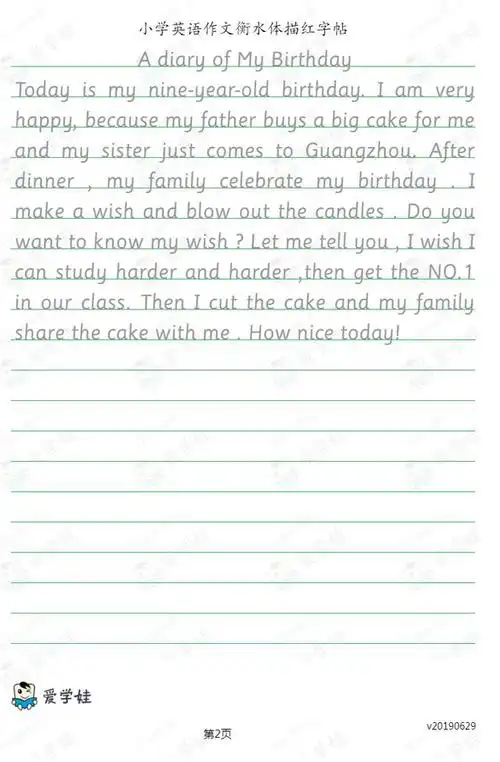 小学英语作文衡水体描红字帖
A diary of My Birthday
Today is my nine-year-old birthday. I am very
happy, because my father buys a big cake for me
and my sister just comes to Guangzhou. After
dinner , my family celebrate my birthday . I
make a wish and blow out the candles . Do you
want to know my wish ? Let me tell you , I wish I
can study harder and harder ,then get the NO.1
in our class. Then I cut the cake and my family
share the cake with me . How nice today!
爱学娃
第2页
v20190629